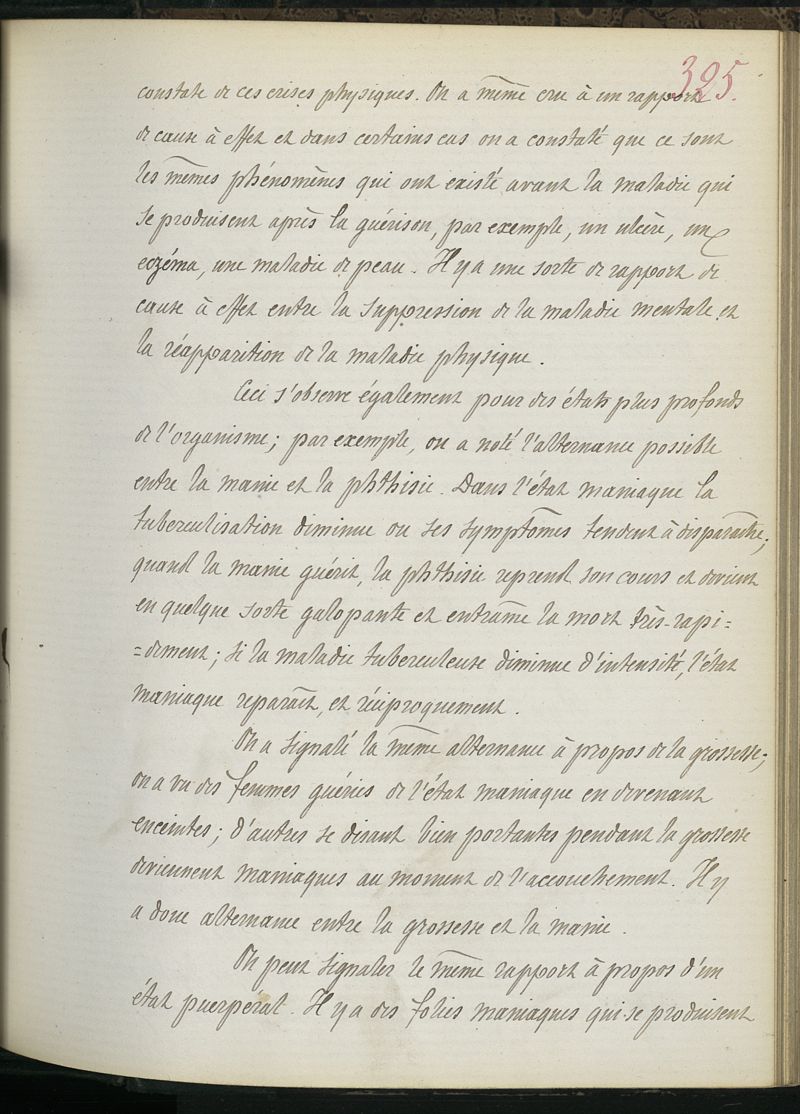 325.
constate de ces crises physiques. On a même cru à un rapport
de cause à effet et dans certains cas on a constaté que ce sont
les mêmes phénomènes qui ont existé avant la maladie qui
se produisent après la guérison, par exemple, un ulcère, un
eczéma, une maladie de peau. Il y a une sorte de rapport de
cause à effet entre la suppression de la maladie mentale et
la réapparition de la maladie physique.
Ceci s'observe également pour des états plus profonds
de l'organisme; par exemple, on a noté l'alternance possible
entre la manie et la phthisie. Dans l'état maniaque la
tuberculisation diminue ou ses symptômes tendent à disparaître;
quand la manie guérit, la phthisie reprend son cours et devient
en quelque sorte galopante et entraîne la mort très-rapi=
=dement; si la maladie tuberculeuse diminue d'intensité, l'état
maniaque reparaît, et réciproquement.
On a signalé la même alternance à propos de la grossesse;
on a vu des femmes guéries de l'état maniaque en devenant
enceintes; d'autres se disant bien portantes pendant la grossesse
deviennent maniaques au moment de l'accouchement. Il y
a donc alternance entre la grossesse et la manie.
On peut signaler le même rapport à propos d'un
état puerpéral. Il y a des folies maniaques qui se produisent